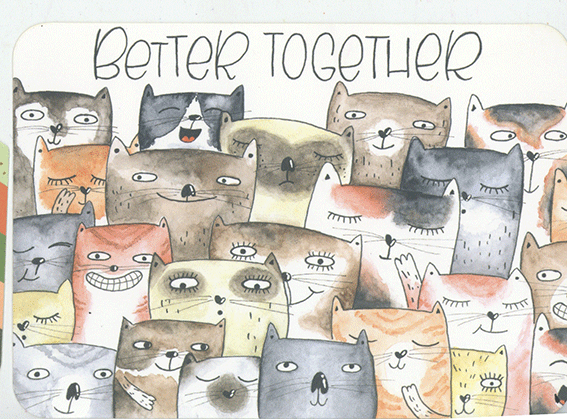 BETTER TOGETHER